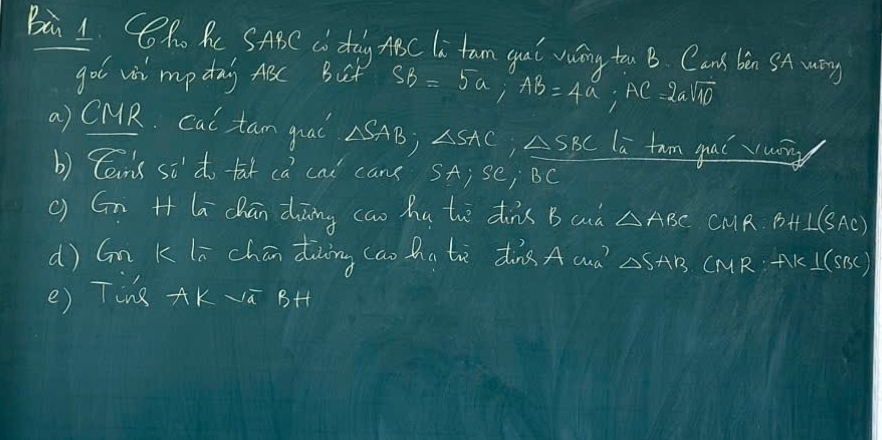 Bài 1. Cho hc SABC có đáy ABC là tam giác vuông tại B. Cạnh bên SA vuông
góc với mp đáy ABC Biết SB = 5a ; AB = 4a ; AC = 2a√10
a) CMR. Các tam giác △SAB; △SAC; △SBC là tam giác vuông
b) Tính số đo tất cả các cạnh SA; SC; BC
c) Gọi H là chân đường cao hạ từ đỉnh B của △ABC. CMR: BH⊥(SAC)
d) Gọi K là chân đường cao hạ từ đỉnh A của △SAB. CMR: AK⊥(SBC)
e) Tính AK và BH